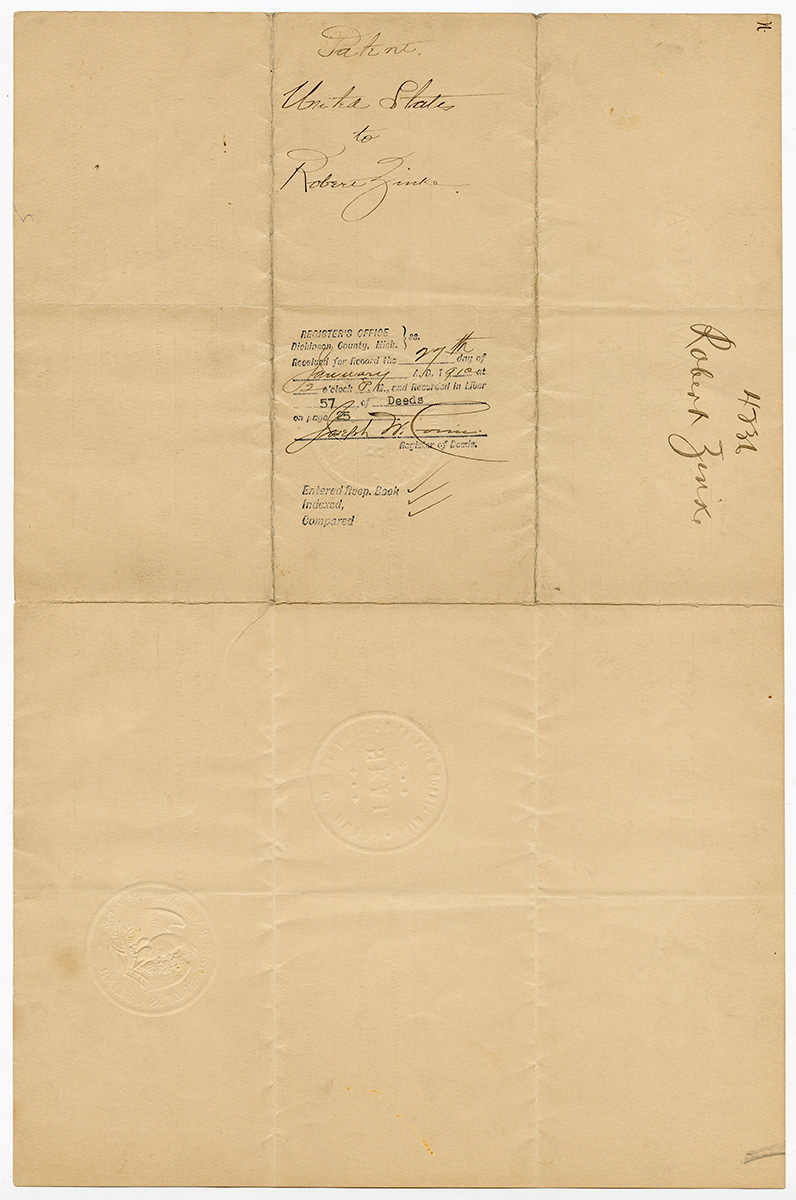 Patent.
United States
to
Robert Zinke.
REGISTER'S OFFICE } ss.
Dickinson County, Mich.
Received for Record the 27th day of
January A.D. 1910 at
12 o'clock P.M., and Recorded in Liber
57 of Deeds
on page 25
Joseph W.
Register of Deeds.
Entered Recp. Book
Indexed,
Compared
Robert Zink
N.
SEAL